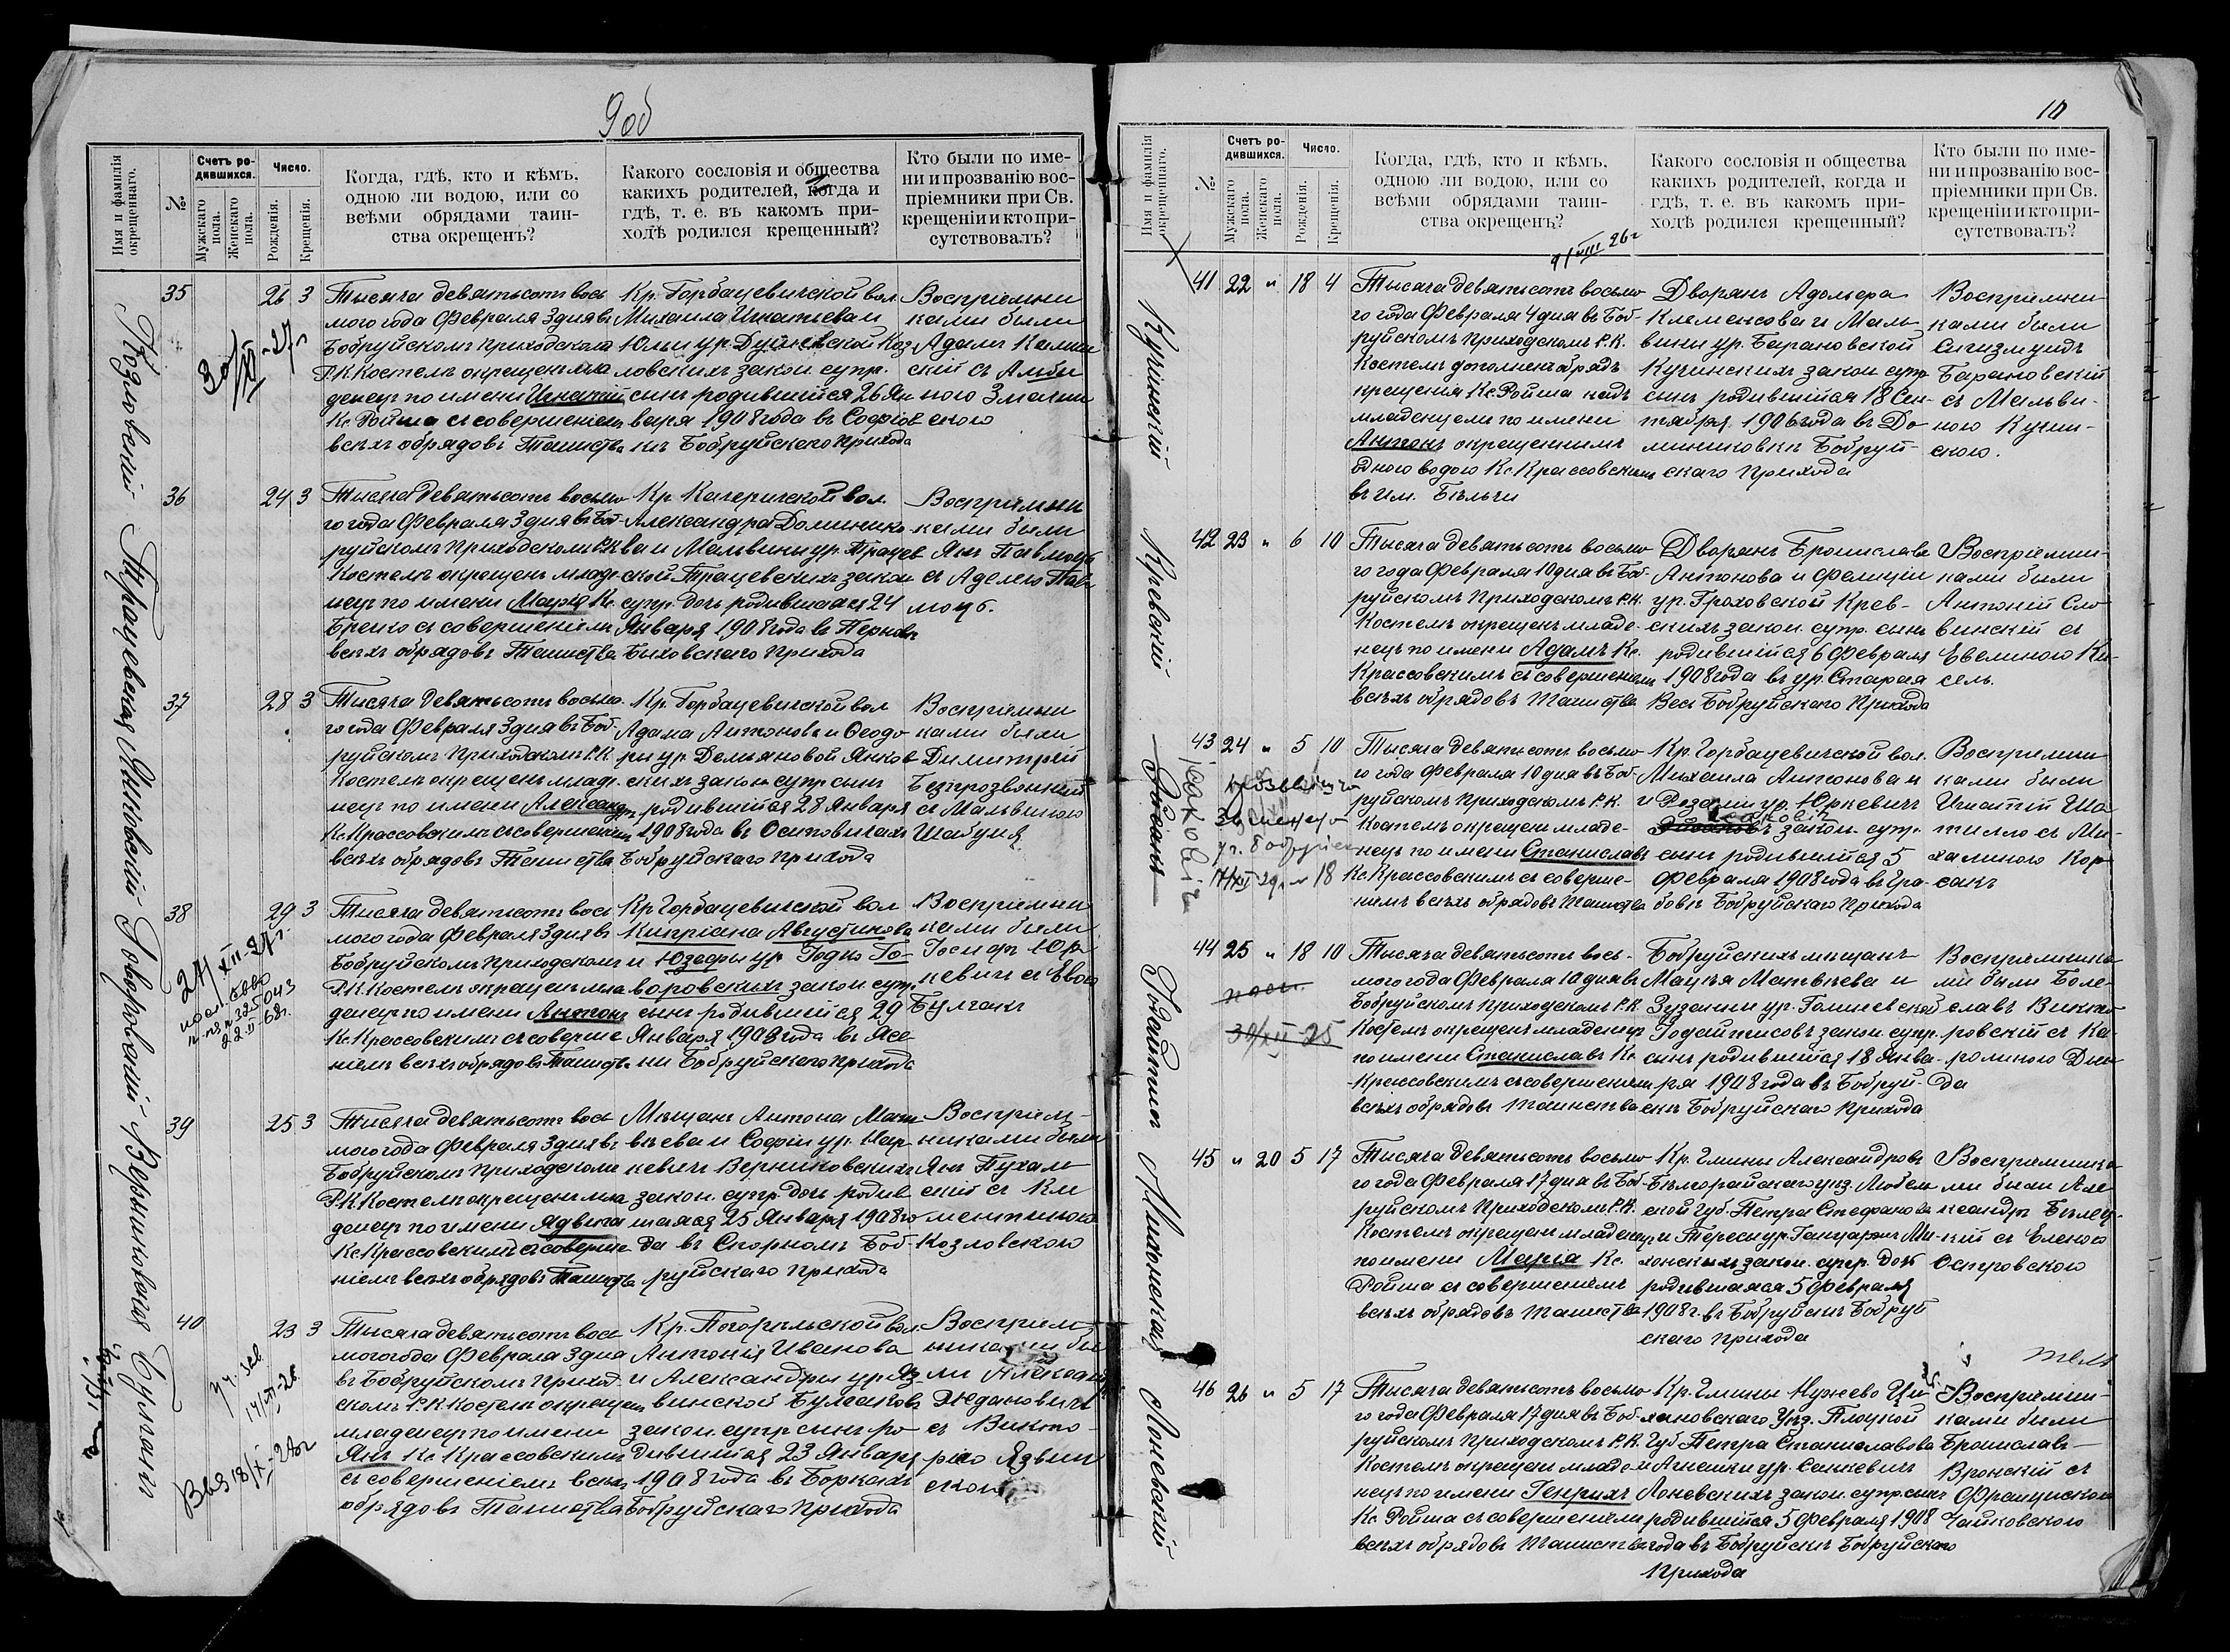 9 об
Имя и фамилія окрещеннаго.
№
Счетъ ро-
дившихся.
Мужскаго пола.
Женскаго пола.
Число.
Рожденія.
Крещенія.
Когда, гдѣ, кто и кѣмъ,
одною ли водою, или со
всѣми обрядами таин-
ства окрещенъ?
Какого сословія и общества
какихъ родителей, когда и
гдѣ, т. е. въ какомъ при-
ходѣ родился крещенный?
Кто были по име-
ни и прозванію вос-
пріемники при Св.
крещеніи и кто при-
сутствовалъ?
Козловскій
35
26 3
30/XI-27г
Тысяча девятьсотъ вось
мого года Февраля 3 дня въ
Бобруйскомъ приходскомъ
Р.К. Костелѣ окрещенъ мла
денецъ по имени Игнатій
Кс. Ройша съ совершеніемъ
всѣхъ обрядовъ Таинства
Кр. Горбацевичской вол.
Михаила Игнатьева и
Юліи ур. Козловскихъ закон. супр.
сынъ родившійся 26 Ян
варя 1908 года въ Софіов
кѣ Бобруйскаго прихода
Воспріемни
ками были
Адамъ
скій съ
Трацевская
36
24 3
Тысяча девятьсотъ восьмо
го года Февраля 3 дня въ Боб-
руйскомъ Приходскомъ Р.К
Костелѣ окрещенъ младе-
нецъ по имени Марія Кс.
съ совершеніемъ
всѣхъ обрядовъ Таинства
Кр. Качеричской вол.
Александра Доминико
ва и Мальвины ур. Трацев
ской Трацевскихъ закон
супр. дочь родившаяся 24
Января 1908 года въ
Быховскаго прихода
Воспріемни
ками были
Янъ
съ Аделею
Янковскій
37
28 3
Тысяча девятьсотъ восьмо
го года Февраля 3 дня въ Боб-
руйскомъ Приходскомъ Р.К
Костелѣ окрещенъ младе-
нецъ по имени Александръ
Кс. Крассовскимъ съ совершеніемъ
всѣхъ обрядовъ Таинства
Кр. Горбацевичской вол
Адама Антонова и Ѳеодо
ры ур. Демьяновой Янков
скихъ закон супр сынъ
родившійся 28 Января
1908 года въ Осиповичахъ
Бобруйскаго прихода
Воспріемни
ками были
Димитрій
Безпрозванный
съ Мальвиною
Шабуня
Говоровскій
38
29 3
24/XII-27г.
22-II-68г.
Тысяча девятьсотъ вось
мого года Февраля 3 дня въ
Бобруйскомъ Приходскомъ
Р.К. Костелѣ окрещенъ мла
денецъ по имени Антонъ
Кс. Крассовскимъ съ соверше
ніемъ всѣхъ обрядовъ Таинства
Кр Горбацевичской вол
Кипріана Августинова
и Юзефы ур Годко Го-
воровскихъ закон суп.
сынъ родившійся 29
Января 1908 года въ Ясе
ни Бобруйскаго прихода
Воспріемни
ками были
Іосифъ Юр
кевичъ съ Евою
Булгакъ
Верниковская
39
25 3
Тысяча девятьсотъ вось
мого года Февраля 3 дня въ
Бобруйскомъ приходскомъ
Р.К. Костелѣ окрещенъ мла
денецъ по имени Ядвига
Кс. Крассовскимъ съ соверше
ніемъ всѣхъ обрядовъ Таинства
Мѣщанъ Антона Мат
вѣева и Софіи ур.
Верниковскихъ
закон. супр. дочь родив
шаяся 25 Января 1908 го
да въ Скорномъ Боб-
руйскаго прихода
Воспріем-
никами были
Янъ Пухаль
скій съ Кле
ментиною
Козловскою
Булгакъ
40
23 3
Тысяча девятьсотъ вось
мого года Февраля 3 дня
въ Бобруйскомъ Приход
скомъ Р.К Костелѣ окрещенъ
младенецъ по имени
Янъ Кс Крассовскимъ
съ совершеніемъ всѣхъ
обрядовъ Таинства
Кр. Погорѣльской вол.
Антонія Иванова
и Александры ур Яз-
винской Булгаковъ
закон супр сынъ ро
дившійся 23 Января
1908 года въ Боркахъ
Бобруйскаго прихода
Воспріем
никами бы
ли Александръ
Ждановичъ
съ Викто
ріею Язвин
скою
10
Имя и фамилія окрещеннаго.
№
Счетъ ро-
дившихся.
Мужскаго пола.
Женскаго пола.
Число.
Рожденія.
Крещенія.
Когда, гдѣ, кто и кѣмъ,
одною ли водою, или со
всѣми обрядами таин-
ства окрещенъ?
Какого сословія и общества
какихъ родителей, когда и
гдѣ, т. е. въ какомъ при-
ходѣ родился крещенный?
Кто были по име-
ни и прозванію вос-
пріемники при Св.
крещеніи и кто при-
сутствовалъ?
Кучинскій
41 22 " 18 4
Тысяча девятьсотъ восьмо
го года Февраля 4 дня въ Боб-
руйскомъ приходскомъ Р.К.
Костелѣ дополненъ обрядъ
крещенія Кс. Ройша надъ
младенцемъ по имени
Антонъ окрещеннымъ
одною водою Кс Крассовскимъ
въ им. Бѣльчи
Дворянъ Адольфа
Клеменсова и Маль
вины ур. Барановской
Кучинскихъ закон супр
сынъ родившійся 18 Сен-
тября 1906 года въ До
миниковкѣ Бобруй-
скаго прихода
Воспріемни
ками были
Сигизмундъ
Барановскій
съ Мальви-
ною Кучин-
скою.
Кревскій
42 23 " 6 10
Тысяча девятьсотъ восьмо
го года Февраля 10 дня въ Боб-
руйскомъ Приходскомъ Р.К.
Костелѣ окрещенъ младе-
нецъ по имени Адамъ Кс.
Крассовскимъ съ совершеніемъ
всѣхъ обрядовъ Таинства
Дворянъ Бронислава
Антонова и Фелиціи
ур. Гроховской Крев-
скихъ закон. супр. сынъ
родившійся 6 Февраля
1908 года въ ур. Старая
Весь Бобруйскаго Прихода
Воспріемни-
ками были
Антоній Сло
винскій съ
Евелиною Ки-
сель.
43 24 " 5 10
Тысяча девятьсотъ восьмо
го года Февраля 10 дня въ Боб-
руйскомъ Приходскомъ Р.К.
Костелѣ окрещенъ младе-
нецъ по имени Станиславъ
Кс Крассовскимъ съ соверше-
ніемъ всѣхъ обрядовъ таинства
Кр. Горбацевичской вол.
Михаила Антонова и
и Розаліи ур. Юркевичъ
закон. супр.
сынъ родившійся 5
Февраля 1908 года въ Гра-
бовѣ Бобруйскаго прихода
Воспріемни
ками были
Игнатій Ша
тилло съ Ми-
халиною Кор-
сакъ
Годайтисъ
44 25 " 18 10
30/XII 25
Тысяча девятьсотъ вось-
мого года Февраля 10 дня въ
Бобруйскомъ Приходскомъ Р.К
Костелѣ окрещенъ младенецъ
по имени Станиславъ Кс
Крассовскимъ съ совершеніемъ
всѣхъ обрядовъ таинства
Бобруйскихъ мѣщанъ
Мацѣя Матвѣева и
Зузанны ур. Голиневской
Годайтисовъ закон. супр.
сынъ родившійся 18 Янва-
ря 1908 года въ Бобруй-
скѣ Бобруйскаго прихода
Воспріемника
ми были Боле-
славъ
ровскій съ Ка-
ролиною
Михонская
45 " 20 5 17
Тысяча девятьсотъ восьмо
го года Февраля 17 дня въ Боб-
руйскомъ Приходскомъ Р.К.
Костелѣ окрещенъ младенецъ
по имени Марія Кс.
Ройша съ совершеніемъ
всѣхъ обрядовъ таинства
Кр. Гмины Александровъ
Бѣлгорайскаго уѣз. Люблин
ской Губ. Петра Стефанова
и Тересы ур. Ми-
хонскихъ закон. супр. дочь
родившаяся 5 Февраля
1908 г. въ Бобруйскѣ Бобруй
скаго прихода
Воспріемника
ми были Але
ксандръ
съ Еленою
Островскою
Лоневскій
46 26 " 5 17
Тысяча девятьсотъ восьмо
го года Февраля 17 дня въ Боб-
руйскомъ Приходскомъ Р.К.
Костелѣ окрещенъ младе-
нецъ по имени Генрихъ
Кс Ройша съ совершеніемъ
всѣхъ обрядовъ таинства
Кр. Гмины Нужево Це
хановскаго Уѣз. Плоцкой
Губ Петра Станиславова
и Агнешки ур. Сенкевичъ
Лоневскихъ закон. супр. сынъ
родившійся 5 Февраля 1908
года въ Бобруйскѣ Бобруйскаго
прихода
Воспріемни-
ками были
Брониславъ
Вронскій съ
Францискою
Чайковскою